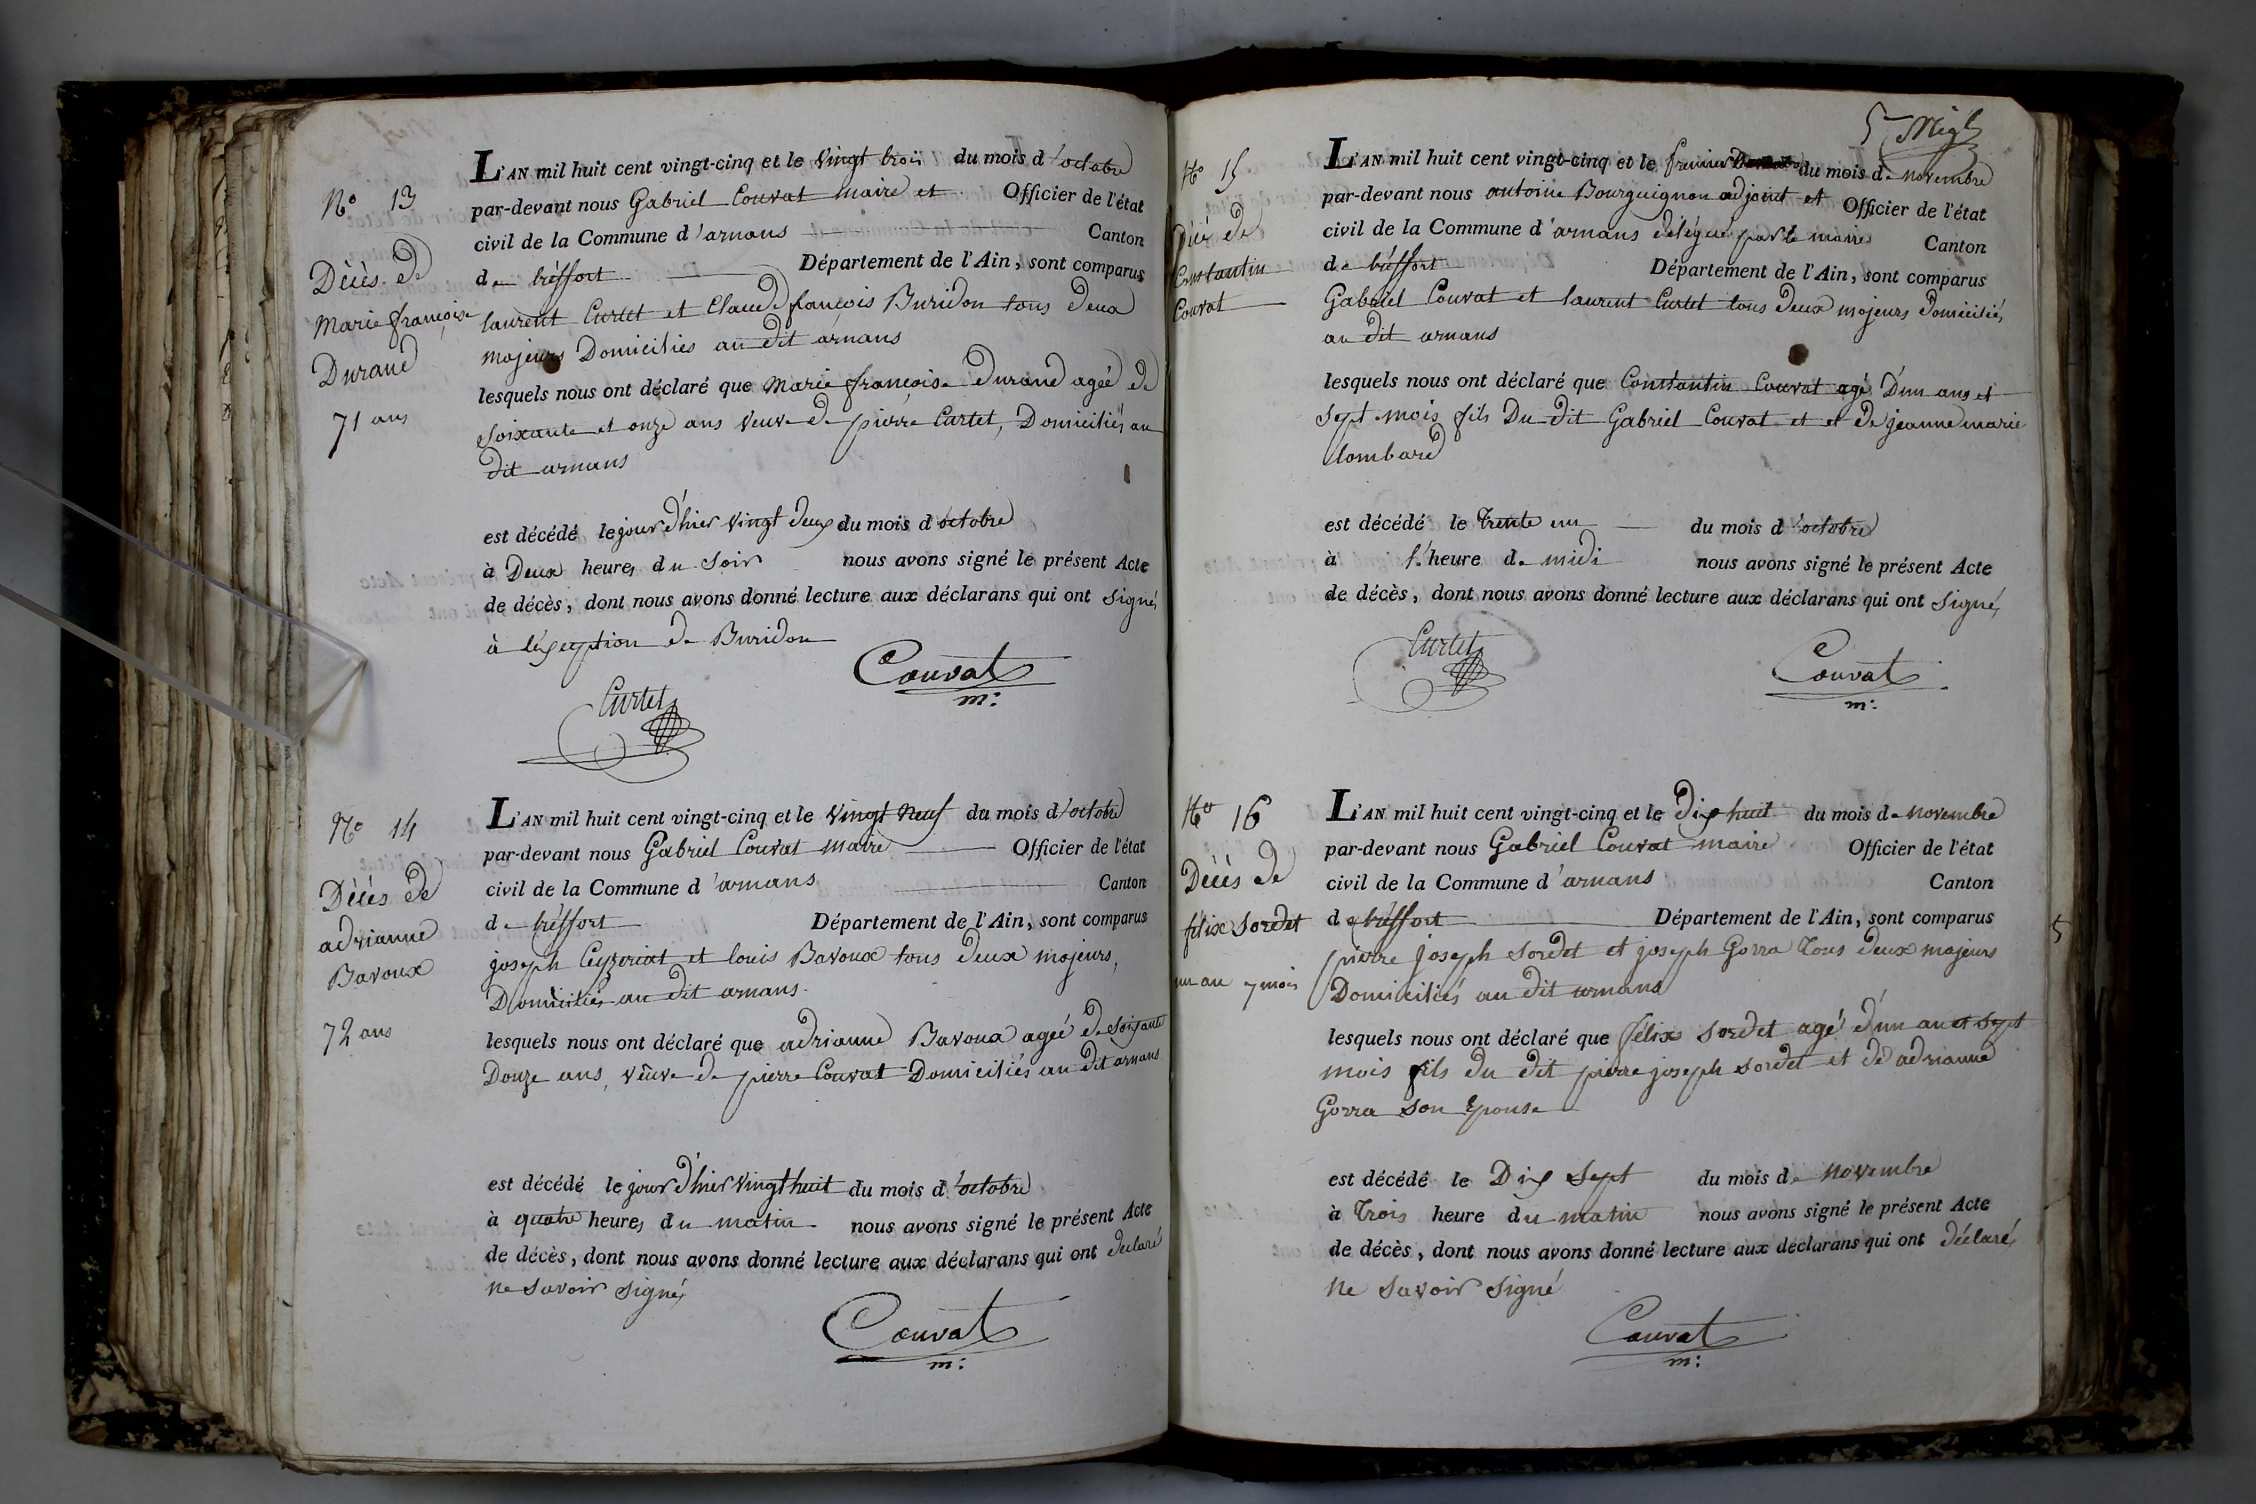 N° 13
Décès de
Marie françoise
Durand
71 ans
L'AN mil huit cent vingt-cinq et le vingt trois du mois d'octobre
par-devant nous Gabriel Couvat maire et Officier de l'état
civil de la Commune d'arnans Canton
de tréffort Département de l'Ain, sont comparus
laurent Curtet et Claude françois Buridon tous deux
majeurs Domiciliés au dit arnans
lesquels nous ont déclaré que Marie françoise durand agée de
soixante et onze ans veuve de pierre Curtet, Domiciliés au
dit arnans
est décédé le jour d'hier vingt deux du mois d'octobre
à Deux heures du soir nous avons signé le présent Acte
de décès, dont nous avons donné lecture aux déclarans qui ont signés
à l'exception de Buridon
Couvat
m:
Curtet
N° 14
Décès de
adrianne
Bavoux
72 ans
L'AN mil huit cent vingt-cinq et le vingt neuf du mois d'octobre
par-devant nous Gabriel Couvat maire Officier de l'état
civil de la Commune d'arnans Canton
de tréffort Département de l'Ain, sont comparus
joseph Ceyzeriat et louis Bavoux tous deux majeurs,
Domiciliés au dit arnans
lesquels nous ont déclaré que adrianne Bavoux agée de soixante
Douze ans, veuve de pierre Couvat Domiciliés au dit arnans
est décédé le jour d'hier vingt huit du mois d'octobre
à quatre heures du matin nous avons signé le présent Acte
de décès, dont nous avons donné lecture aux déclarans qui ont déclaré
ne savoir signés
Couvat
m:
5
N° 15
Décè de
Constantin
Couvat
L'AN mil huit cent vingt-cinq et le premier du mois de novembre
par-devant nous antoine Bourguignon adjoint et Officier de l'état
civil de la Commune d'arnans délégué par le maire Canton
de tréffort Département de l'Ain, sont comparus
Gabriel Couvat et laurent Curtet tous deux majeurs domiciliés
au dit arnans
lesquels nous ont déclaré que Constantin Couvat agé D'un ans et
sept mois fils Du dit Gabriel Couvat et et de jeanne marie
lombard
est décédé le trente un du mois d'octobre
à l'heure de midi nous avons signé le présent Acte
de décès, dont nous avons donné lecture aux déclarans qui ont signés
Curtet
Couvat
m:
N° 16
Décès de
félix Sordet
un an 7 mois
L'AN mil huit cent vingt-cinq et le Dix huit du mois de novembre
par-devant nous Gabriel Couvat maire Officier de l'état
civil de la Commune d'arnans Canton
de tréffort Département de l'Ain, sont comparus
pierre joseph Sordet et joseph Gorra tous deux majeurs
Domiciliés au dit arnans
lesquels nous ont déclaré que félix Sordet agé d'un an et sept
mois fils du dit pierre joseph sordet et de adrianne
Gorra son Epouse
est décédé le Dix Sept du mois de Novembre
à Trois heure du matin nous avons signé le présent Acte
de décès, dont nous avons donné lecture aux déclarans qui ont déclarés
ne savoir signé
Couvat
m:
5